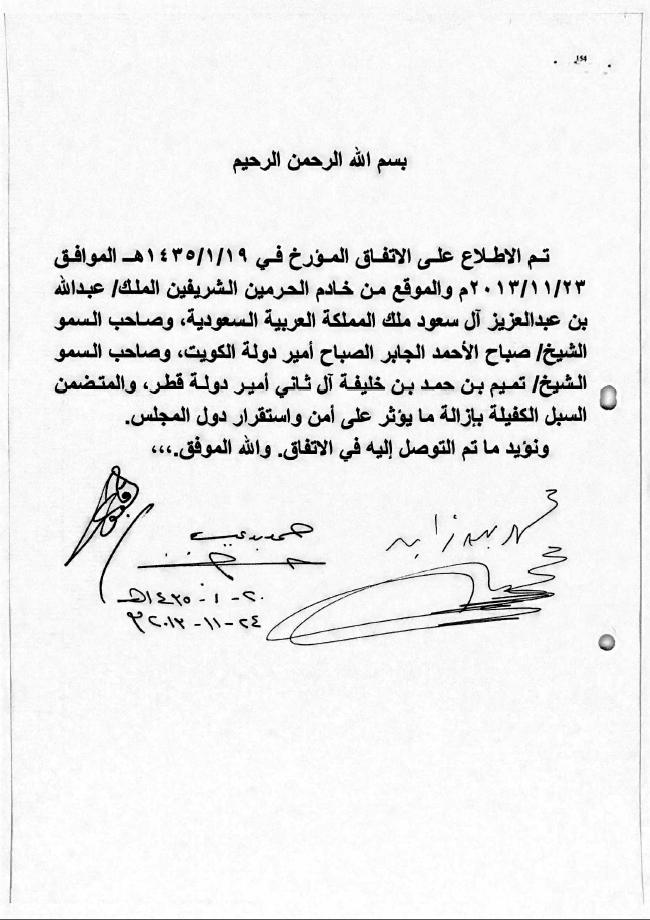 154
بسم الله الرحمن الرحيم
تم الاطلاع على الاتفاق المؤرخ في ١٤٣٥/١/١٩هـ الموافق
٢٠١٣/١١/٢٣م والموقع من خادم الحرمين الشريفين الملك/ عبدالله
بن عبدالعزيز آل سعود ملك المملكة العربية السعودية، وصاحب السمو
الشيخ/ صباح الأحمد الجابر الصباح أمير دولة الكويت، وصاحب السمو
الشيخ/ تميم بن حمد بن خليفة آل ثاني أمير دولة قطر، والمتضمن
السبل الكفيلة بإزالة ما يؤثر على أمن واستقرار دول المجلس.
ونؤيد ما تم التوصل إليه في الاتفاق. والله الموفق.،،،
٢٠-١-١٤٣٥هـ
٢٤-١١-٢٠١٣م